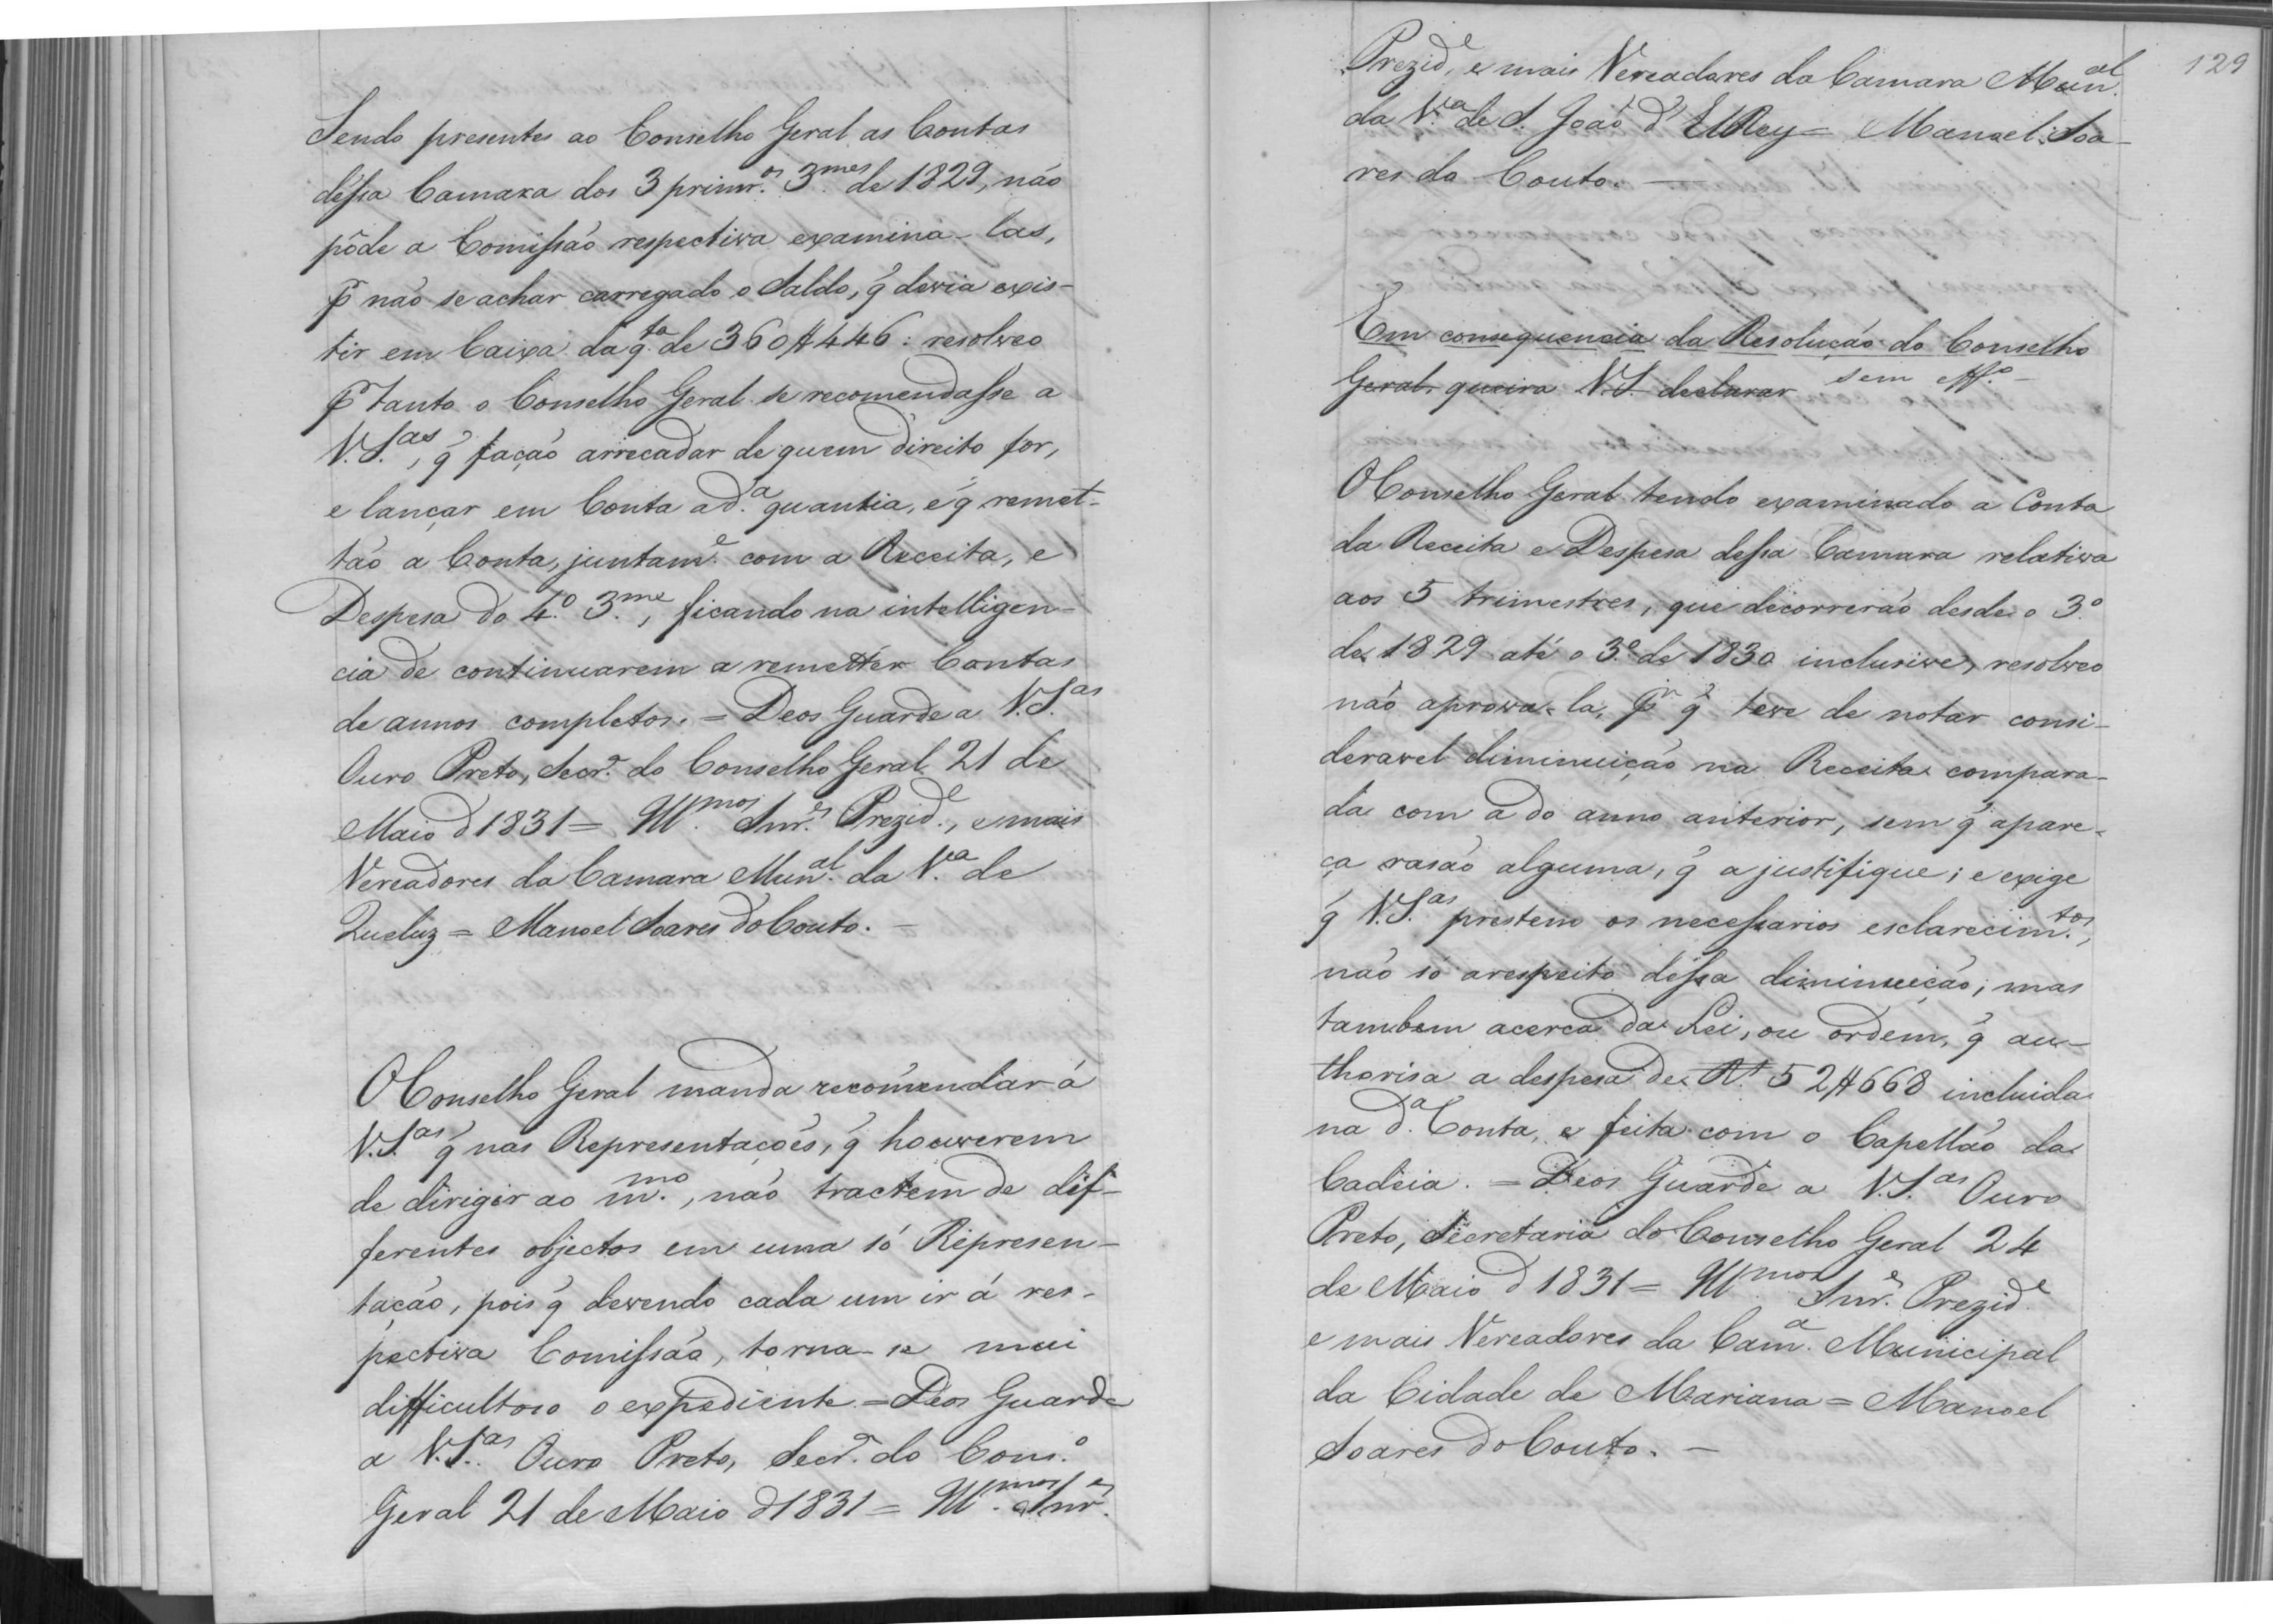 Sendo presentes ao Conselho Geral as Contas
dessa Camara dos 3 primr.os 3.mes de 1829, não
pôde a Comissão respectiva examina-las,
p.r não se achar carregado o Saldo, q̃ devia exis-
tir em Caixa da q.ta de 360$446: resolveo
p.r tanto o Conselho Geral se recomendasse a
V.S.as, q̃ fação arrecadar de quem direito for,
e lançar em Conta a d.a quantia, e q̃ remet-
tão a Conta, juntam.e com a Receita, e
Despesa do 4.º 3.me, ficando na intelligen-
cia de continuarem a remetter Contas
de annos completos. = Deos Guarde a V.S.as
Ouro Preto, Secr.a do Conselho Geral 21 de
Maio d 1831 = Ill.mos Snr.es Prezid.e, e mais
Vereadores da Camara Mun.al da V.a de
Queluz = Manoel Soares do Couto. —
O Conselho Geral manda recomendar á
V.S.as q̃ nas Representações, q̃ houverem
de dirigir ao m.mo, não tractem de dif-
ferentes objectos em uma só Represen-
tação, pois q̃ devendo cada um ir á res-
pectiva Comissão, torna-se mui
difficultoso o expediente = Deos Guarde
a V.S.as Ouro Preto, Secr.a do Cons.o
Geral 21 de Maio d 1831 = Ill.mos Snr.es
129
Prezid.e, e mais Vereadores da Camara Mun.al
da V.a de S. João d'ElRey = Manoel Soa-
res do Couto. —
Em consequencia da Resolução do Conselho
Geral, queira V.S. declarar sem eff.o —
O Conselho Geral tendo examinado a Conta
da Receita e Despesa dessa Camara relativa
aos 5 trimestres, que decorrerão desde o 3.º
de 1829 até o 3.º de 1830 inclusive, resolveo
não aprova-la, p.r q̃ teve de notar consi-
deravel diminuição na Receita compara-
da com a do anno anterior, sem q̃ apare-
ça rasão alguma, q̃ a justifique; e exige
q̃ V.S.as prestem os necessarios esclarecim.tos,
não só a respeito dessa diminuição; mas
tambem acerca da Lei, ou ordem, q̃ au-
thorisa a despesa de R.s 52$668 incluida
na d.a Conta, e feita com o Capellão da
Cadeia. = Deos Guarde a V.S.as Ouro
Preto, Secretaria do Conselho Geral 24
de Maio d 1831 = Ill.mos Snr.es Prezid.e
e mais Vereadores da Cam.a Municipal
da Cidade de Mariana = Manoel
Soares do Couto. —